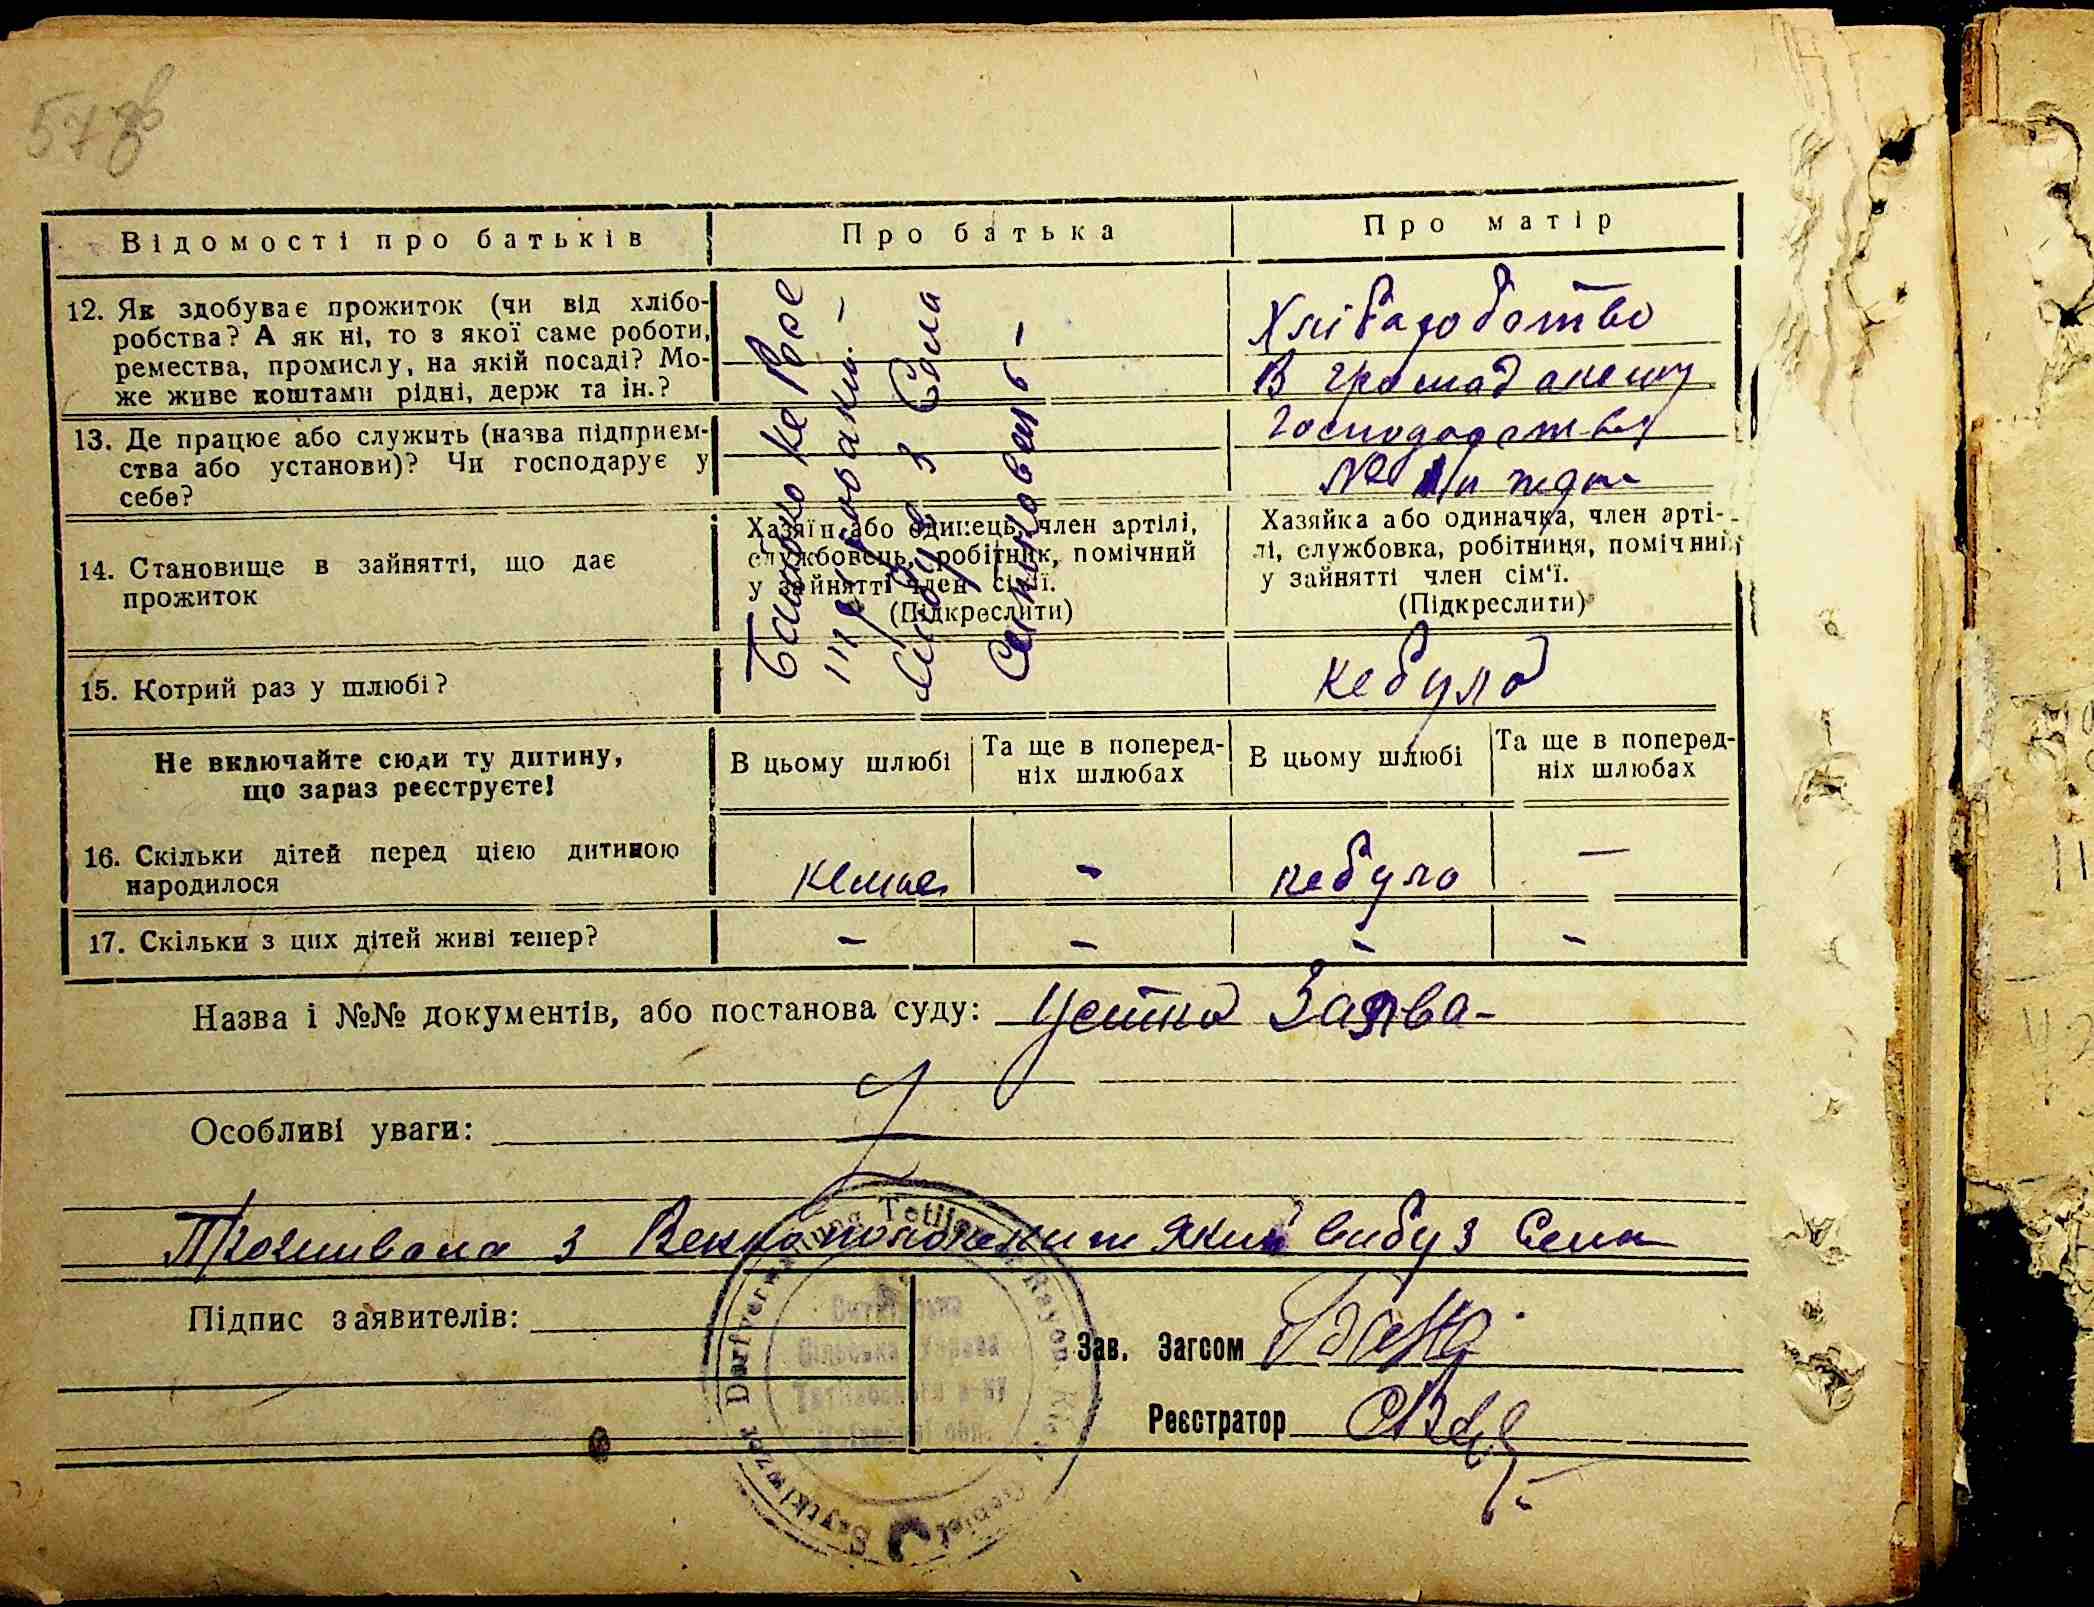 57 зв
Відомості про батьків
Про батька
Про матір
12. Як здобуває прожиток (чи від хлібо-
робства? А як ні, то з якої саме роботи,
ремества, промислу, на якій посаді? Мо-
же живе коштами рідні, держ та ін.?
Хліба
В
13. Де працює або служить (назва підприєм-
ства або установи)? Чи господарує у
себе?
№
Батько не
Выбув з Села
14. Становище в зайнятті, що дає
прожиток
Хазяїн або одинець, член артілі,
службовець, робітник, помічний
у зайнятті член сім'ї.
(Підкреслити)
Хазяйка або одиначка, член арті-
лі, службовка, робітниця, помічний
у зайнятті член сім'ї.
(Підкреслити)
15. Котрий раз у шлюбі?
небула
Не включайте сюди ту дитину,
що зараз реєструєте!
В цьому шлюбі
Та ще в поперед-
ніх шлюбах
В цьому шлюбі
Та ще в поперед-
ніх шлюбах
16. Скільки дітей перед цією дитиною
народилося
немає - небуло —
17. Скільки з цих дітей живі тепер?
- - - -
Назва і №№ документів, або постанова суду: Устна Заява-
Особливі уваги:
Проживала з який вибу з Села
Підпис заявителів:
Зав. Загсом
Реєстратор
Dorfverwaltung Tetijew Rayon Kiew Gebiet
Сільська Управа
Тетіївського р-ну
Київської обл.